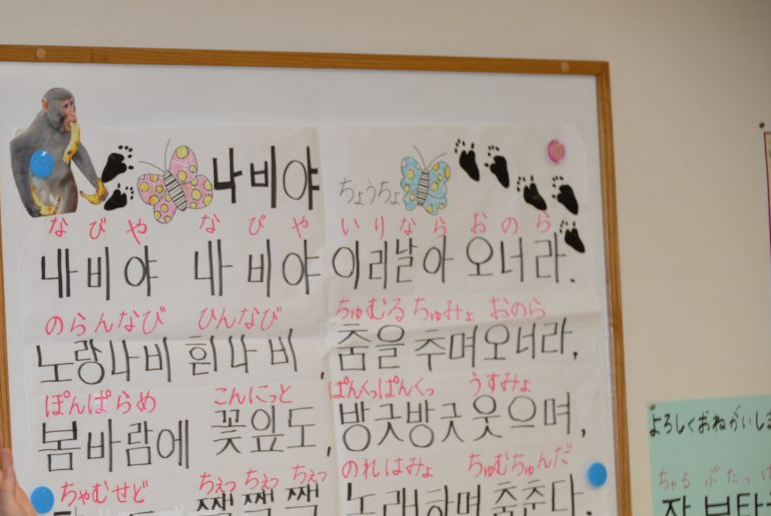 나비야 ちょうちょ
なびや なびや いりなら おのら
내비야 내비야 이리날아 오너라.
のらんなび ひんなび ちゅむる ちゅみょ おのら
노랑나비 흰나비, 춤을 추며오너라,
ぽんぱらめ こんにっと ぱんくっぱんくっ うすみょ
봄바람에 꽃잎도, 방긋방긋 웃으며,
ちゃむせど ちぇっ ちぇっ ちぇっ のれはみょ ちゅむちゅんだ
짹 짹 짹 노래하며 춤춘다.
よろしくおねがいしま
ちゃる ぷたっ
잘 부탁